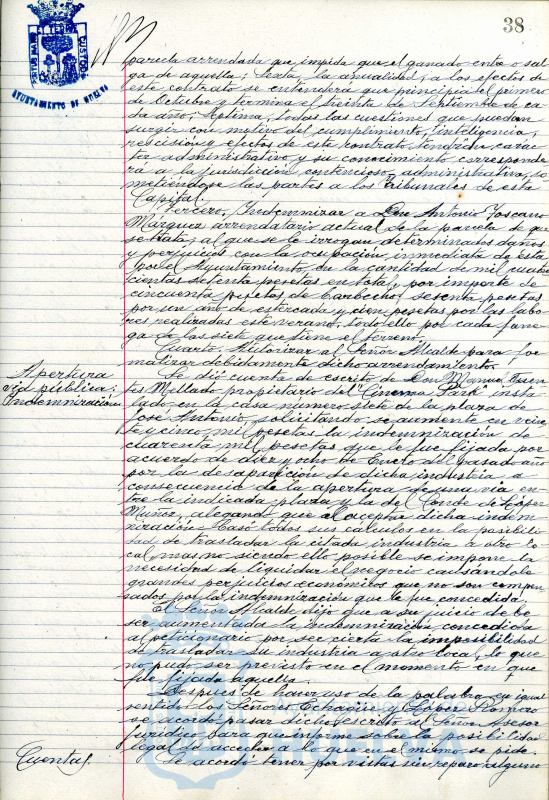 38
PORTUS MARIS ET TERRAE CUSTODIA
AYUNTAMIENTO DE HUELVA
parcela arrendada que impida que el ganado entre o sal-
ga de aquella; Sexta, la anualidad, a los efectos de
este contrato se entenderá que principia el primero
de Octubre y termina el treinta de Septiembre de ca-
da año; Septima, todas las cuestiones que puedan
surgir con motivo del cumplimiento, inteligencia,
rescisión y efectos de este contrato tendrán carac-
ter administrativo y su conocimiento corresponde-
rá a la jurisdicción contencioso-administrativa, so-
metiéndose las partes a los Tribunales de esta
Capital.
Tercero, Indemnizar a Don Antonio Toscano
Márquez arrendatario actual de la parcela de que
se trata, al que se le irrogan determinados daños
y perjuicios con la ocupación inmediata de esta
por el Ayuntamiento, en la cantidad de mil cuatro-
cientas setenta pesetas en total, por importe de
cincuenta pesetas de barbecho, sesenta pesetas
por un año de estercada y cien pesetas por las labo-
res realizadas este verano, todo ello por cada fane-
ga de las siete que tiene el terreno.
Cuarto, Autorizar al Señor Alcalde para for-
malizar debidamente dicho arrendamiento.
Apertura
vía pública:
Indemnización
Se dió cuenta de escrito de Don Manuel Fuen-
tes Mellado propietario del "Cinema Park" insta-
lado en la casa numero siete de la plaza de
José Antonio, solicitando se aumente en vein-
te y cinco mil pesetas la indemnización de
cuarenta mil pesetas que le fue fijada por
acuerdo de diez y ocho de Enero del pasado año
por la desaparición de dicha industria a
consecuencia de la apertura de una via en-
tre la indicada plaza y la de Conde de López
Muñoz, alegando que al aceptar dicha indem-
nización basó todos sus cálculos en la posibili-
dad de trasladar la citada industria a otro lo-
cal, mas no siendo ello posible se impone la
necesidad de liquidar el negocio causándole
grandes perjuicios económicos que no son compen-
sados por la indemnización que le fue concedida.
El Señor Alcalde dijo que a su juicio debe
ser aumentada la indemnización concedida
al peticionario por ser cierta la imposibilidad
de trasladar su industria a otro local, lo que
no pudo ser previsto en el momento en que
fue fijada aquella.
Despues de hacer uso de la palabra en igual
sentido los Señores Echagüe y López Romero
se acordó pasar dicho escrito al Señor Asesor
Jurídico para que informe sobre la posibilidad
legal de acceder a lo que en el mismo se pide.
Cuentas.
Se acordó tener por vistas sin reparo alguno